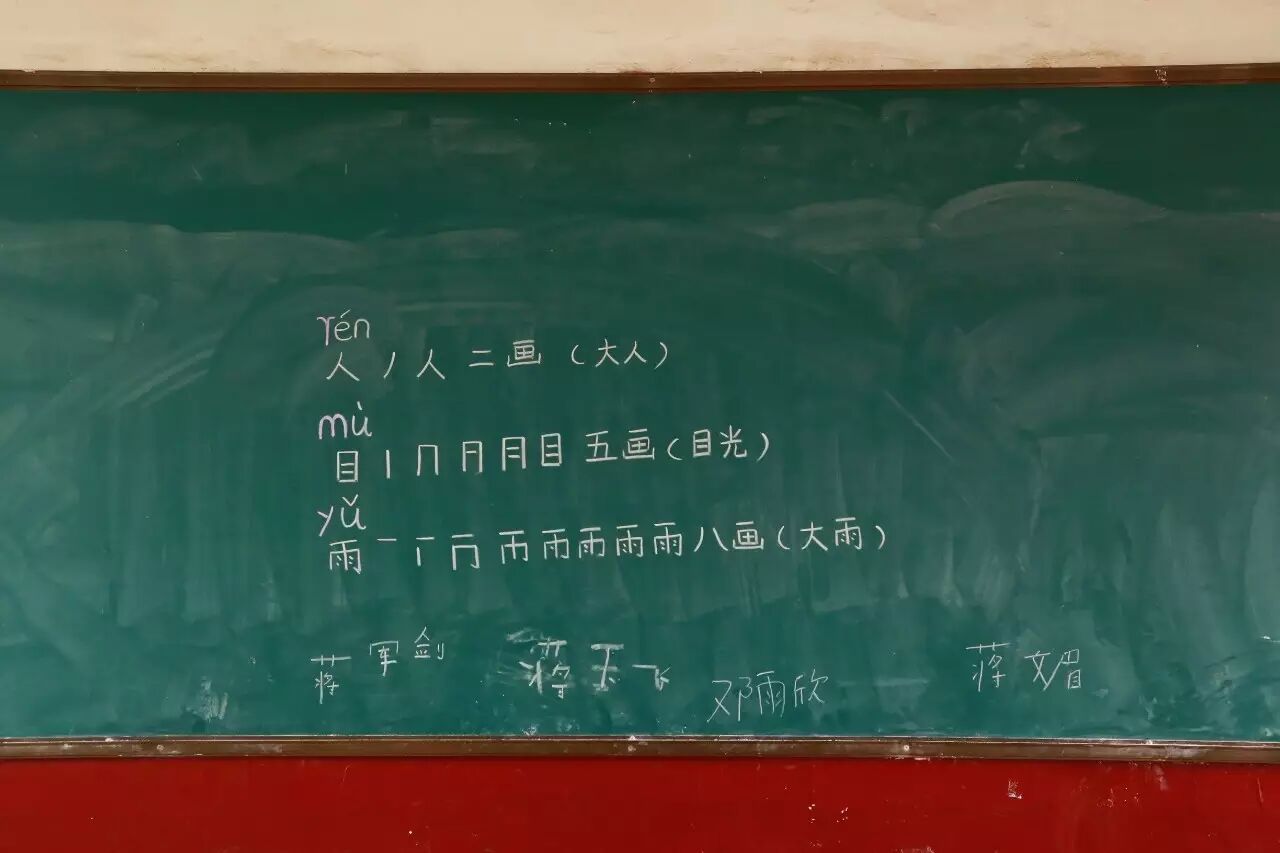 rén
人 丿 人 二画（大人）
mù
目 丨 冂 月 月 目 五画（目光）
yǔ
雨 一 丅 帀 雨 雨 雨 雨 八画（大雨）
蒋军剑 蒋玉飞 邓雨欣 蒋文娟